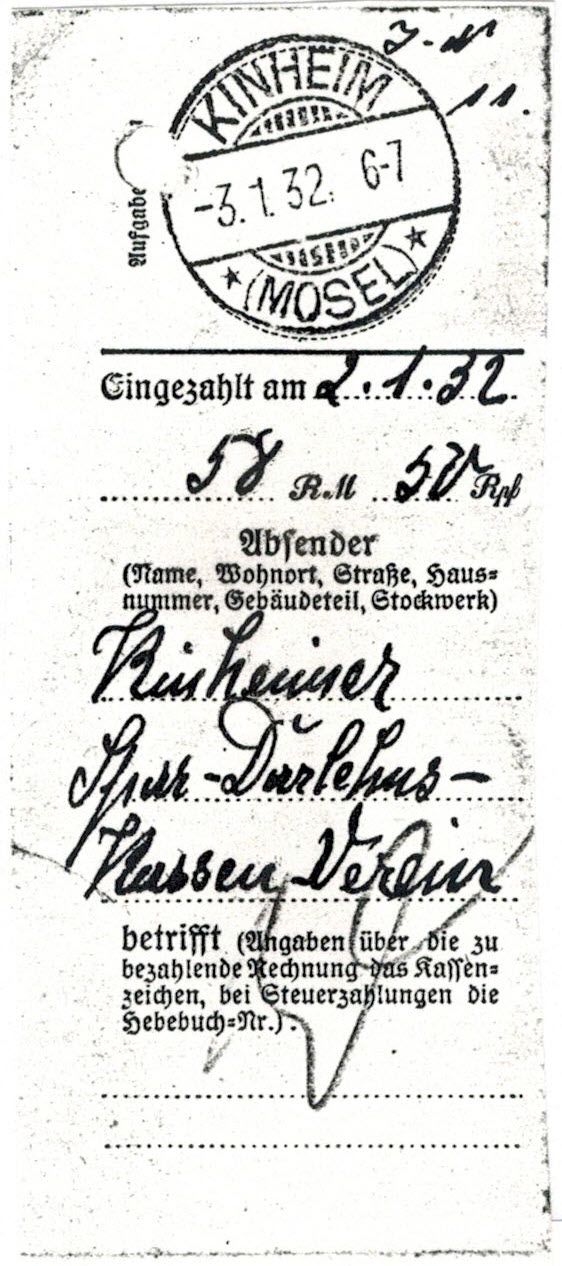 KINHEIM
-3.1.32. 6-7
(MOSEL)
Aufgabe
11.
Eingezahlt am 2.1.32.
58 RM 50 Rpf
Absender
(Name, Wohnort, Straße, Haus=
nummer, Gebäudeteil, Stockwerk)
Kinheimer
Spar-Darlehns-
Kassen-Verein
betrifft (Angaben über die zu
bezahlende Rechnung das Kassen=
zeichen, bei Steuerzahlungen die
Hebebuch=Nr.).